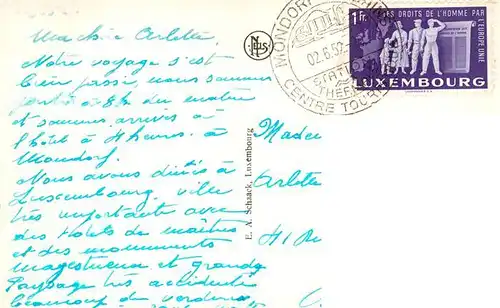 Ma chère Arlette
Notre voyage s'est
bien passé, nous sommes
partis à 8h du matin
et sommes arrivés à
l'hôtel à 4 heures à
Mondorf.
Nous avons dîné à
Luxembourg, ville
très importante avec
des Hotels de maîtres
et des monuments
magestueux et grands
Paysage très accidenté
beaucoup de verdure
NELS
E. A. Schaack, Luxembourg
MONDORF
02.6.52
STATION
THERM
CENTRE TOUR
1 Fr.
DES DROITS DE L'HOMME PAR
L'EUROPE UNIE
LUXEMBOURG
Madem
Arlette
41 Ru